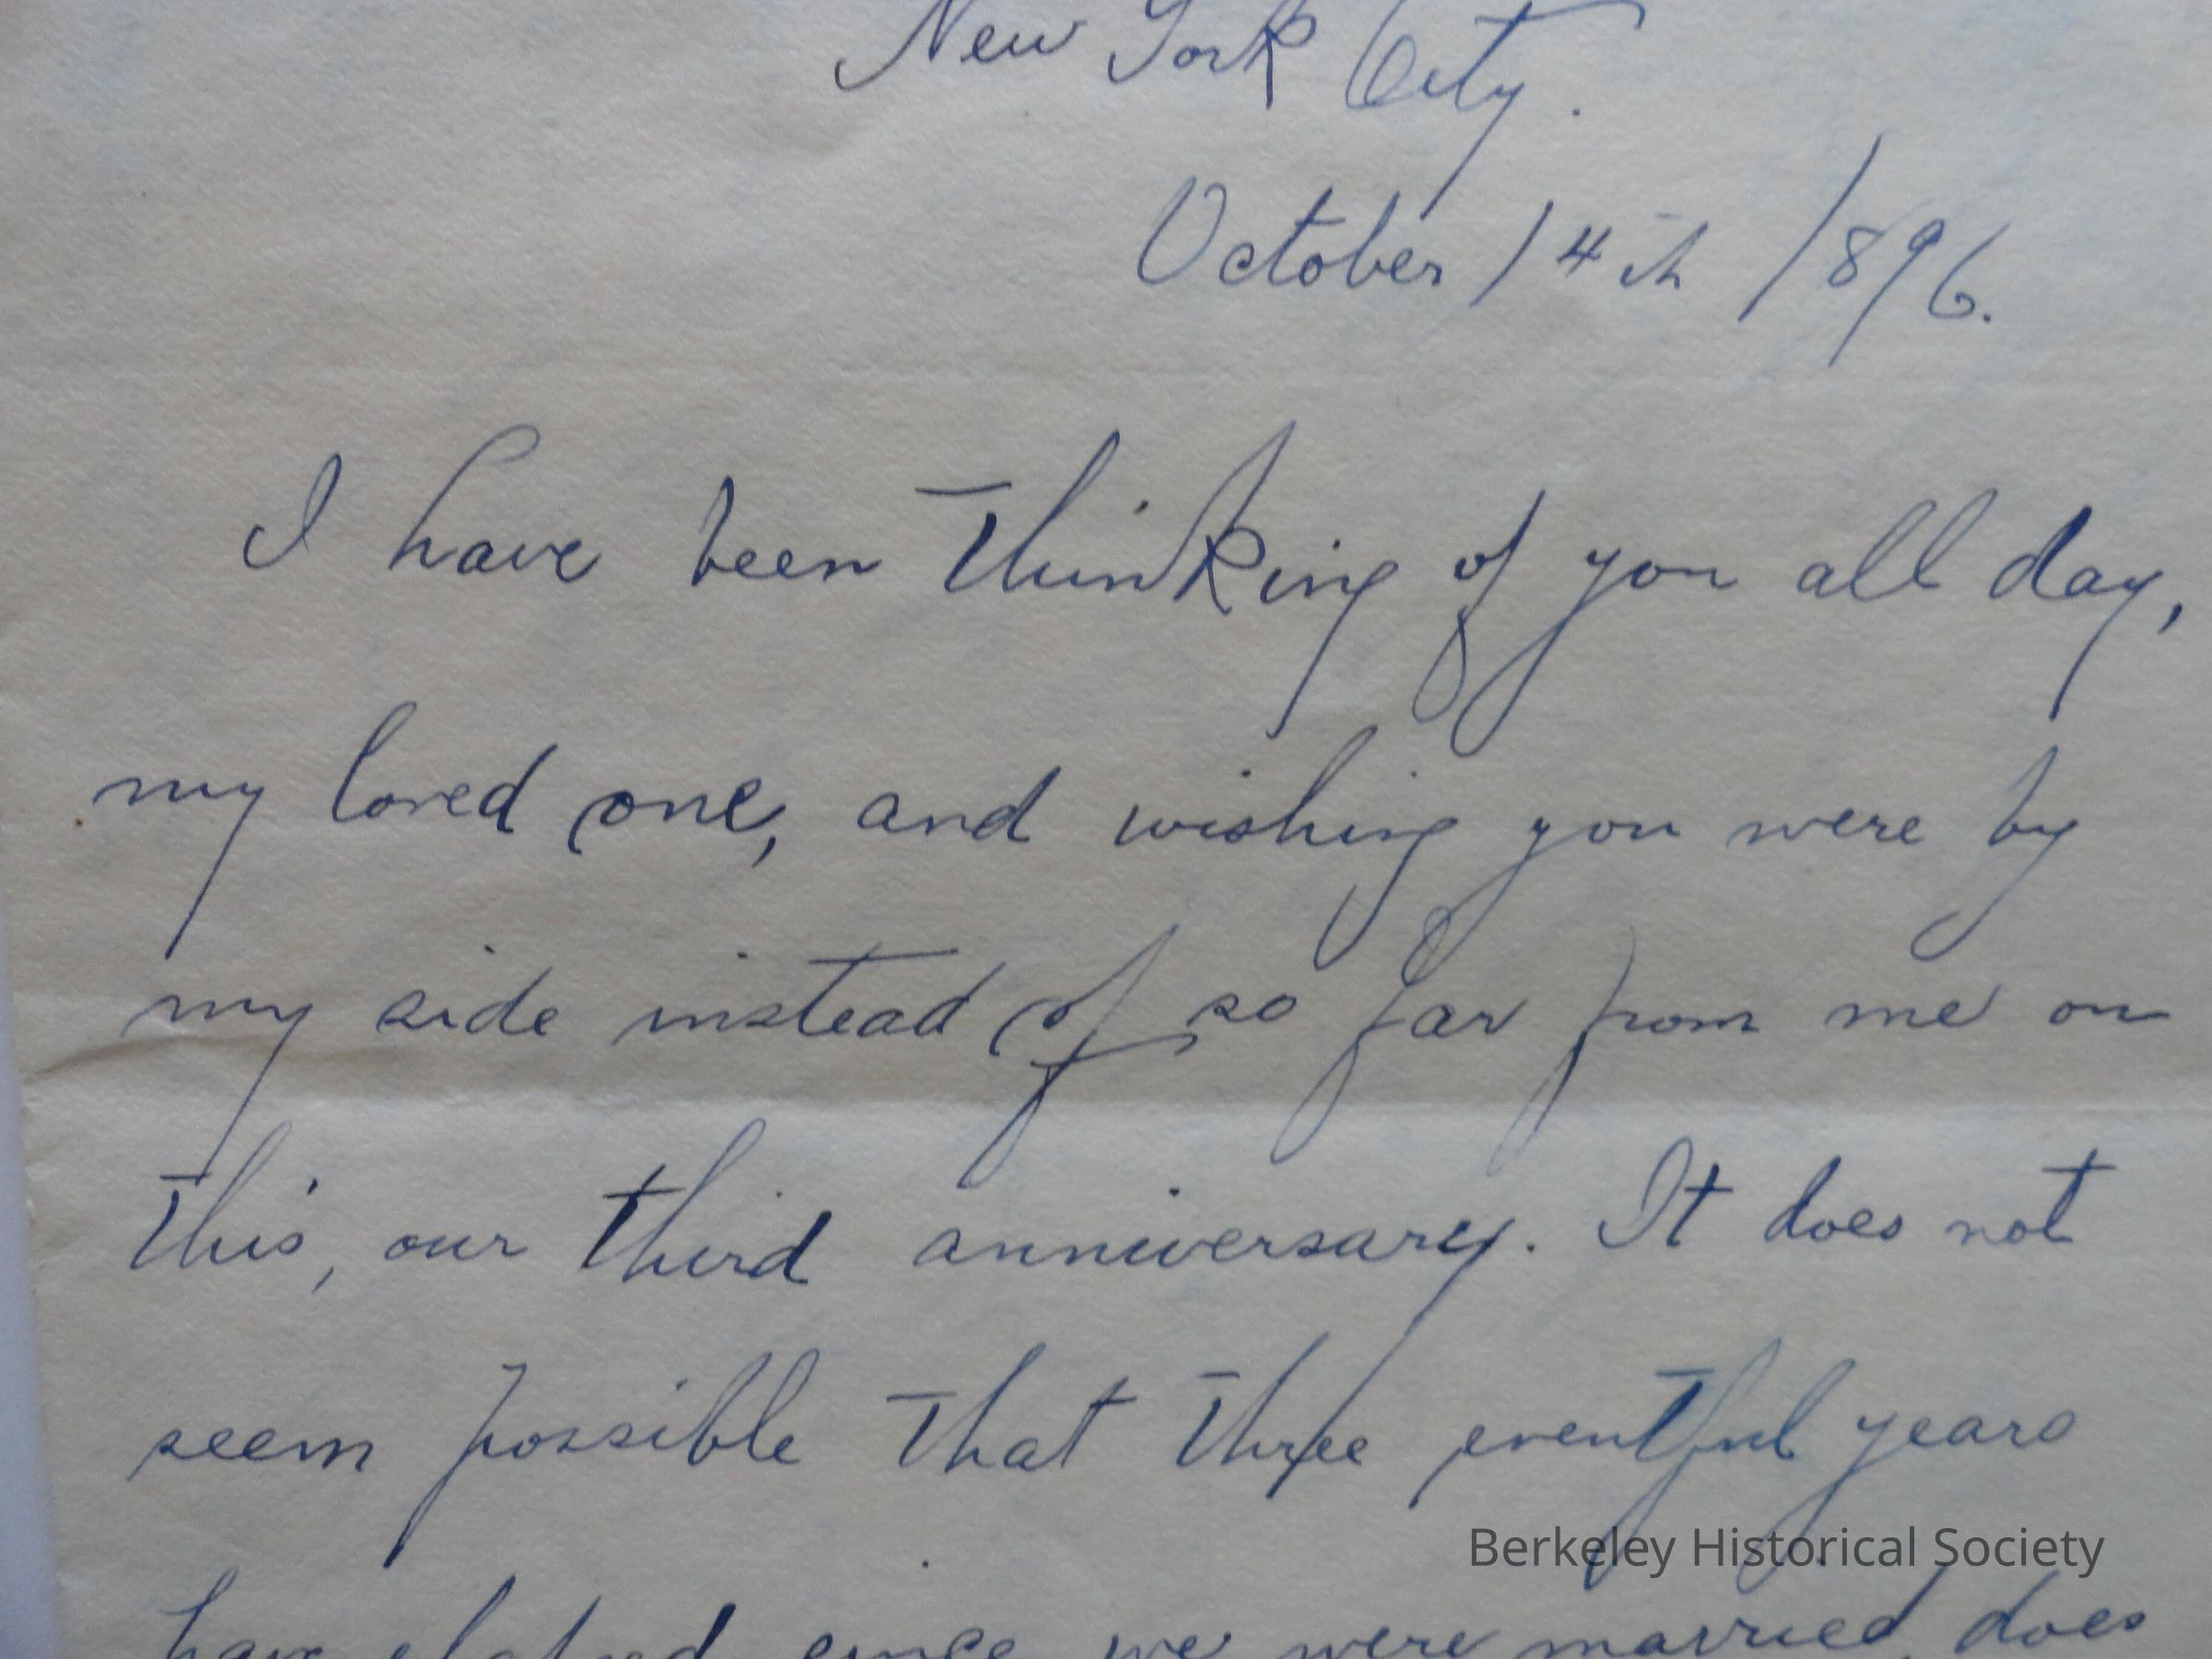 New York City.
October 14th 1896.
I have been thinking of you all day,
my loved one, and wishing you were by
my side instead of so far from me on
this, our third anniversary. It does not
seem possible that three eventful years
Berkeley Historical Society
have elapsed since we were married, does